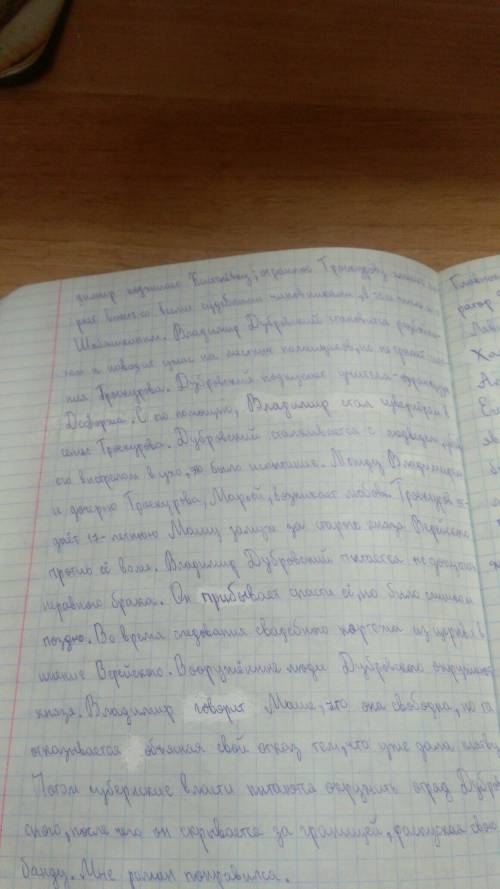 димир поджигает Кистенёвку, Троекурову
рает вместе со всеми судебными чиновниками, в том числе и
Шабашкиным. Владимир Дубровский становится разбойни-
ком и наводит ужас на местных помещиков, но не трогает име-
ния Троекурова. Дубровский подкупает учителя-француза
Дефоржа. С его помощью, Владимир стал гувернёром в
семье Троекурова. Дубровский сталкивается с медведем,
его выстрелом в ухо, то было испытание. Между Владимиром
и дочерью Троекурова, Марьей, возникает любовь. Троекуров от-
даёт 17-летнюю Машу замуж за старого князя Верейского
против её воли. Владимир Дубровский пытается не допустить
неравного брака. Он прибывает спасти её, но было слишком
поздно. Во время следования свадебного кортежа из церкви в
имение Верейского. Вооружённые люди Дубровского окружают
князя. Владимир говорит Маше, что она свободна, но та
отказывается объясняя свой отказ тем, что уже дала клятву.
Потом губернские власти пытаются окружить отряд Дубров
ского, после чего он скрывается за границей, распуская свою
банду. Мне роман понравился.
Главно
ратор
Ха